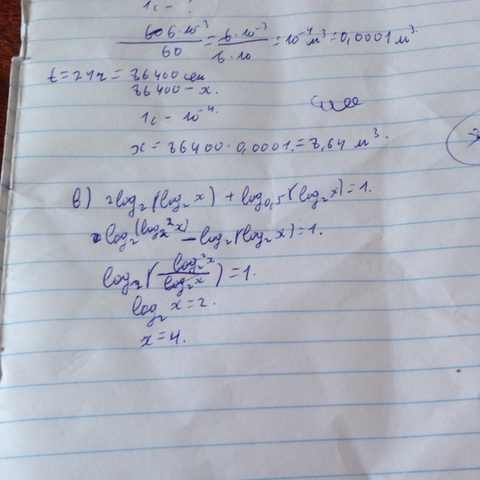 1c - ?
6·10⁻³/60 = 6·10⁻³/6·10 = 10⁻⁴ м³ = 0,0001 м³.
t = 24ч = 86400 сек
86400 - x.
1c - 10⁻⁴.
x = 86400 · 0,0001 = 8,64 м³.
в) 2log₂(log₂x) + log₀,₅(log₂x) = 1.
log₂(log₂²x) - log₂(log₂x) = 1.
log₂(log₂²x/log₂x) = 1.
log₂x = 2.
x = 4.